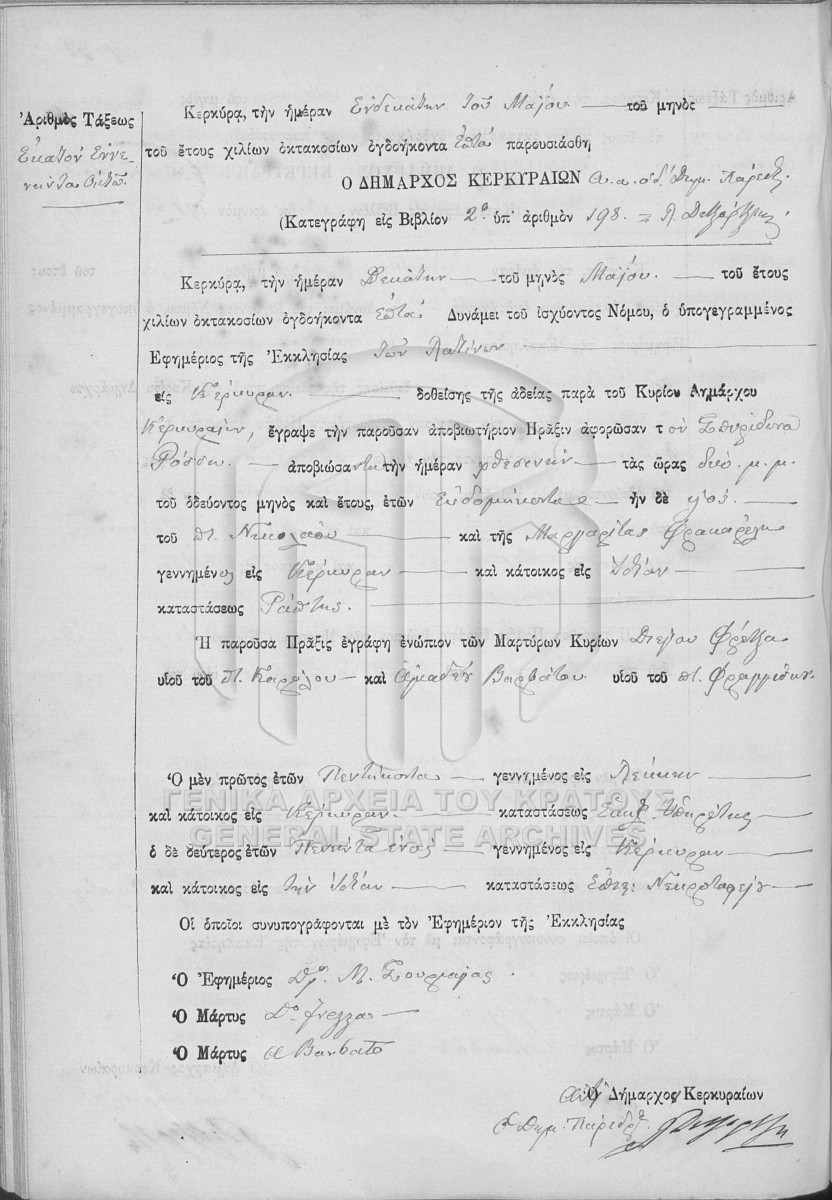 Ἀριθμὸς Τάξεως
Ἑκατὸν Ἐννε-
νήντα ὀκτὼ.
Κερκύρᾳ, τὴν ἡμέραν Ἑνδεκάτην τοῦ Μαΐου τοῦ μηνὸς
τοῦ ἔτους χιλίων ὀκτακοσίων ὀγδοήκοντα Ἑπτὰ παρουσιάσθη
Ο ΔΗΜΑΡΧΟΣ ΚΕΡΚΥΡΑΙΩΝ
(Κατεγράφη εἰς Βιβλίον 2ο ὑπ' ἀριθμὸν 198.
Κερκύρᾳ, τὴν ἡμέραν Δεκάτην τοῦ μηνὸς Μαΐου. τοῦ ἔτους
χιλίων ὀκτακοσίων ὀγδοήκοντα Ἑπτὰ Δυνάμει τοῦ ἰσχύοντος Νόμου, ὁ ὑπογεγραμμένος
Ἐφημέριος τῆς Ἐκκλησίας τῶν Λατίνων
εἰς Κέρκυραν. δοθείσης τῆς ἀδείας παρὰ τοῦ Κυρίου Δημάρχου
Κερκυραίων, ἔγραψε τὴν παροῦσαν ἀποβιωτήριον Πρᾶξιν ἀφορῶσαν τὸν Σπυρίδωνα
Ρόσσω. ἀποβιώσαντα τὴν ἡμέραν χθεσινὴν τὰς ὥρας δύο. μ. μ.
τοῦ ὁδεύοντος μηνὸς καὶ ἔτους, ἐτῶν Ἑβδομήκοντα ἦν δὲ υἱὸς.
τοῦ πτ. Νικολάου καὶ τῆς Μαργαρίτας
γεννημένος εἰς Κέρκυραν καὶ κάτοικος εἰς Ἰδίαν
καταστάσεως Ράπτης.
Ἡ παροῦσα Πρᾶξις ἐγράφη ἐνώπιον τῶν Μαρτύρων Κυρίων
υἱοῦ τοῦ πτ. Καρόλου καὶ Ἀμαδέου Βαρβάτου. υἱοῦ τοῦ πτ. Φραγγίσκου
Ὁ μὲν πρῶτος ἐτῶν Πεντήκοντα γεννημένος εἰς
καὶ κάτοικος εἰς Κέρκυραν. καταστάσεως Ἐκκλ. Ὑπηρέτης
ὁ δὲ δεύτερος ἐτῶν Πενήντα ἑνὸς γεννημένος εἰς Κέρκυραν
καὶ κάτοικος εἰς τὴν Ἰδίαν καταστάσεως Νεκροταφείου
Οἱ ὁποῖοι συνυπογράφονται μὲ τὸν Ἐφημέριον τῆς Ἐκκλησίας
Ὁ Ἐφημέριος
Ὁ Μάρτυς
Ὁ Μάρτυς A Barbato
Ὁ Δήμαρχος Κερκυραίων
ὁ Δημ. Πάρεδρ.
ΓΕΝΙΚΑ ΑΡΧΕΙΑ ΤΟΥ ΚΡΑΤΟΥΣ
GENERAL STATE ARCHIVES